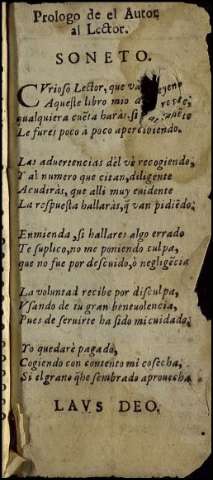 Prologo de el Autor
al Lector.
SONETO.
CVrioso Lector, que vas leyendo
Aqueste libro mio
qualquiera cuẽta harás, si
Le fures poco à poco aperciuiendo.
Las aduertencias dèl ve recogiendo,
Y al numero que citan, diligente
Acudiràs, que alli muy euidente
La respuesta hallaràs, q̃ van pidiẽdo.
Enmienda, si hallares algo errado
Te suplico, no me poniendo culpa,
que no fue por descuido, ò negligẽcia
La voluntad recibe por disculpa,
Vsando de tu gran beneuolencia,
Pues de seruirte ha sido mi cuidado.
Yo quedarè pagado,
Cogiendo con contento mi cosecha,
Si el grano q̃he sembrado aprouecha
LAVS DEO.